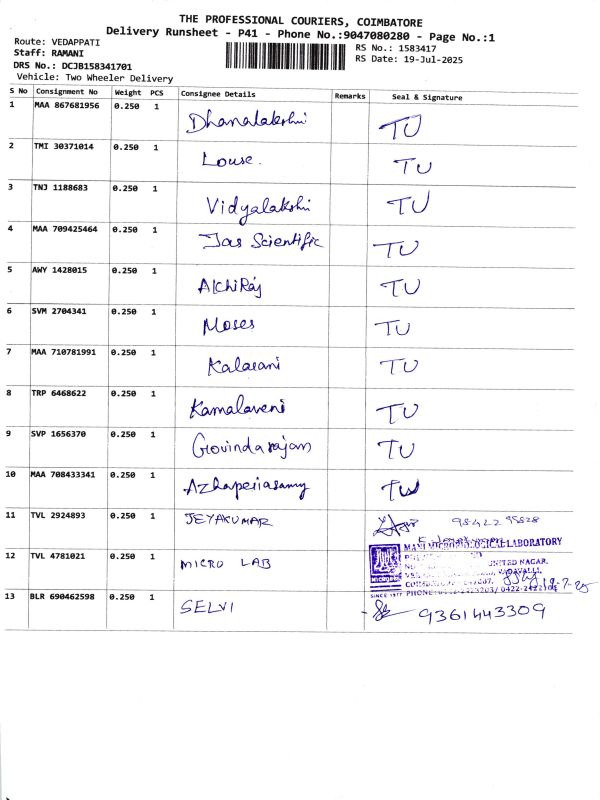 THE PROFESSIONAL COURIERS, COIMBATORE
Delivery Runsheet - P41 - Phone No.:9047080280 - Page No.:1
Route: VEDAPPATI
RS No.: 1583417
Staff: RAMANI
RS Date: 19-Jul-2025
DRS No.: DCJB158341701
Vehicle: Two Wheeler Delivery
S No Consignment No Weight PCS Consignee Details Remarks Seal & Signature
1 MAA 867681956 0.250 1 Dhanalakshi TU
2 TMI 30371014 0.250 1 Louse. TU
3 TNJ 1188683 0.250 1 Vidyalakshi TU
4 MAA 709425464 0.250 1 Jas Scientific TU
5 AWY 1428015 0.250 1 TU
6 SVM 2704341 0.250 1 Moses TU
7 MAA 710781991 0.250 1 Kalarani TU
8 TRP 6468622 0.250 1 Kamalaveni TU
9 SVP 1656370 0.250 1 Govindarajan TU
10 MAA 708433341 0.250 1 Azhaperiasamy TU
11 TVL 2924893 0.250 1 JEYAKUMAR 98422 95828
12 TVL 4781021 0.250 1 MICRO LAB
MICROBIOLOGICAL LABORATORY
UNITED NAGAR,
SINCE 1977 PHONE: 19-7-25
13 BLR 690462598 0.250 1 SELVI 9361443309